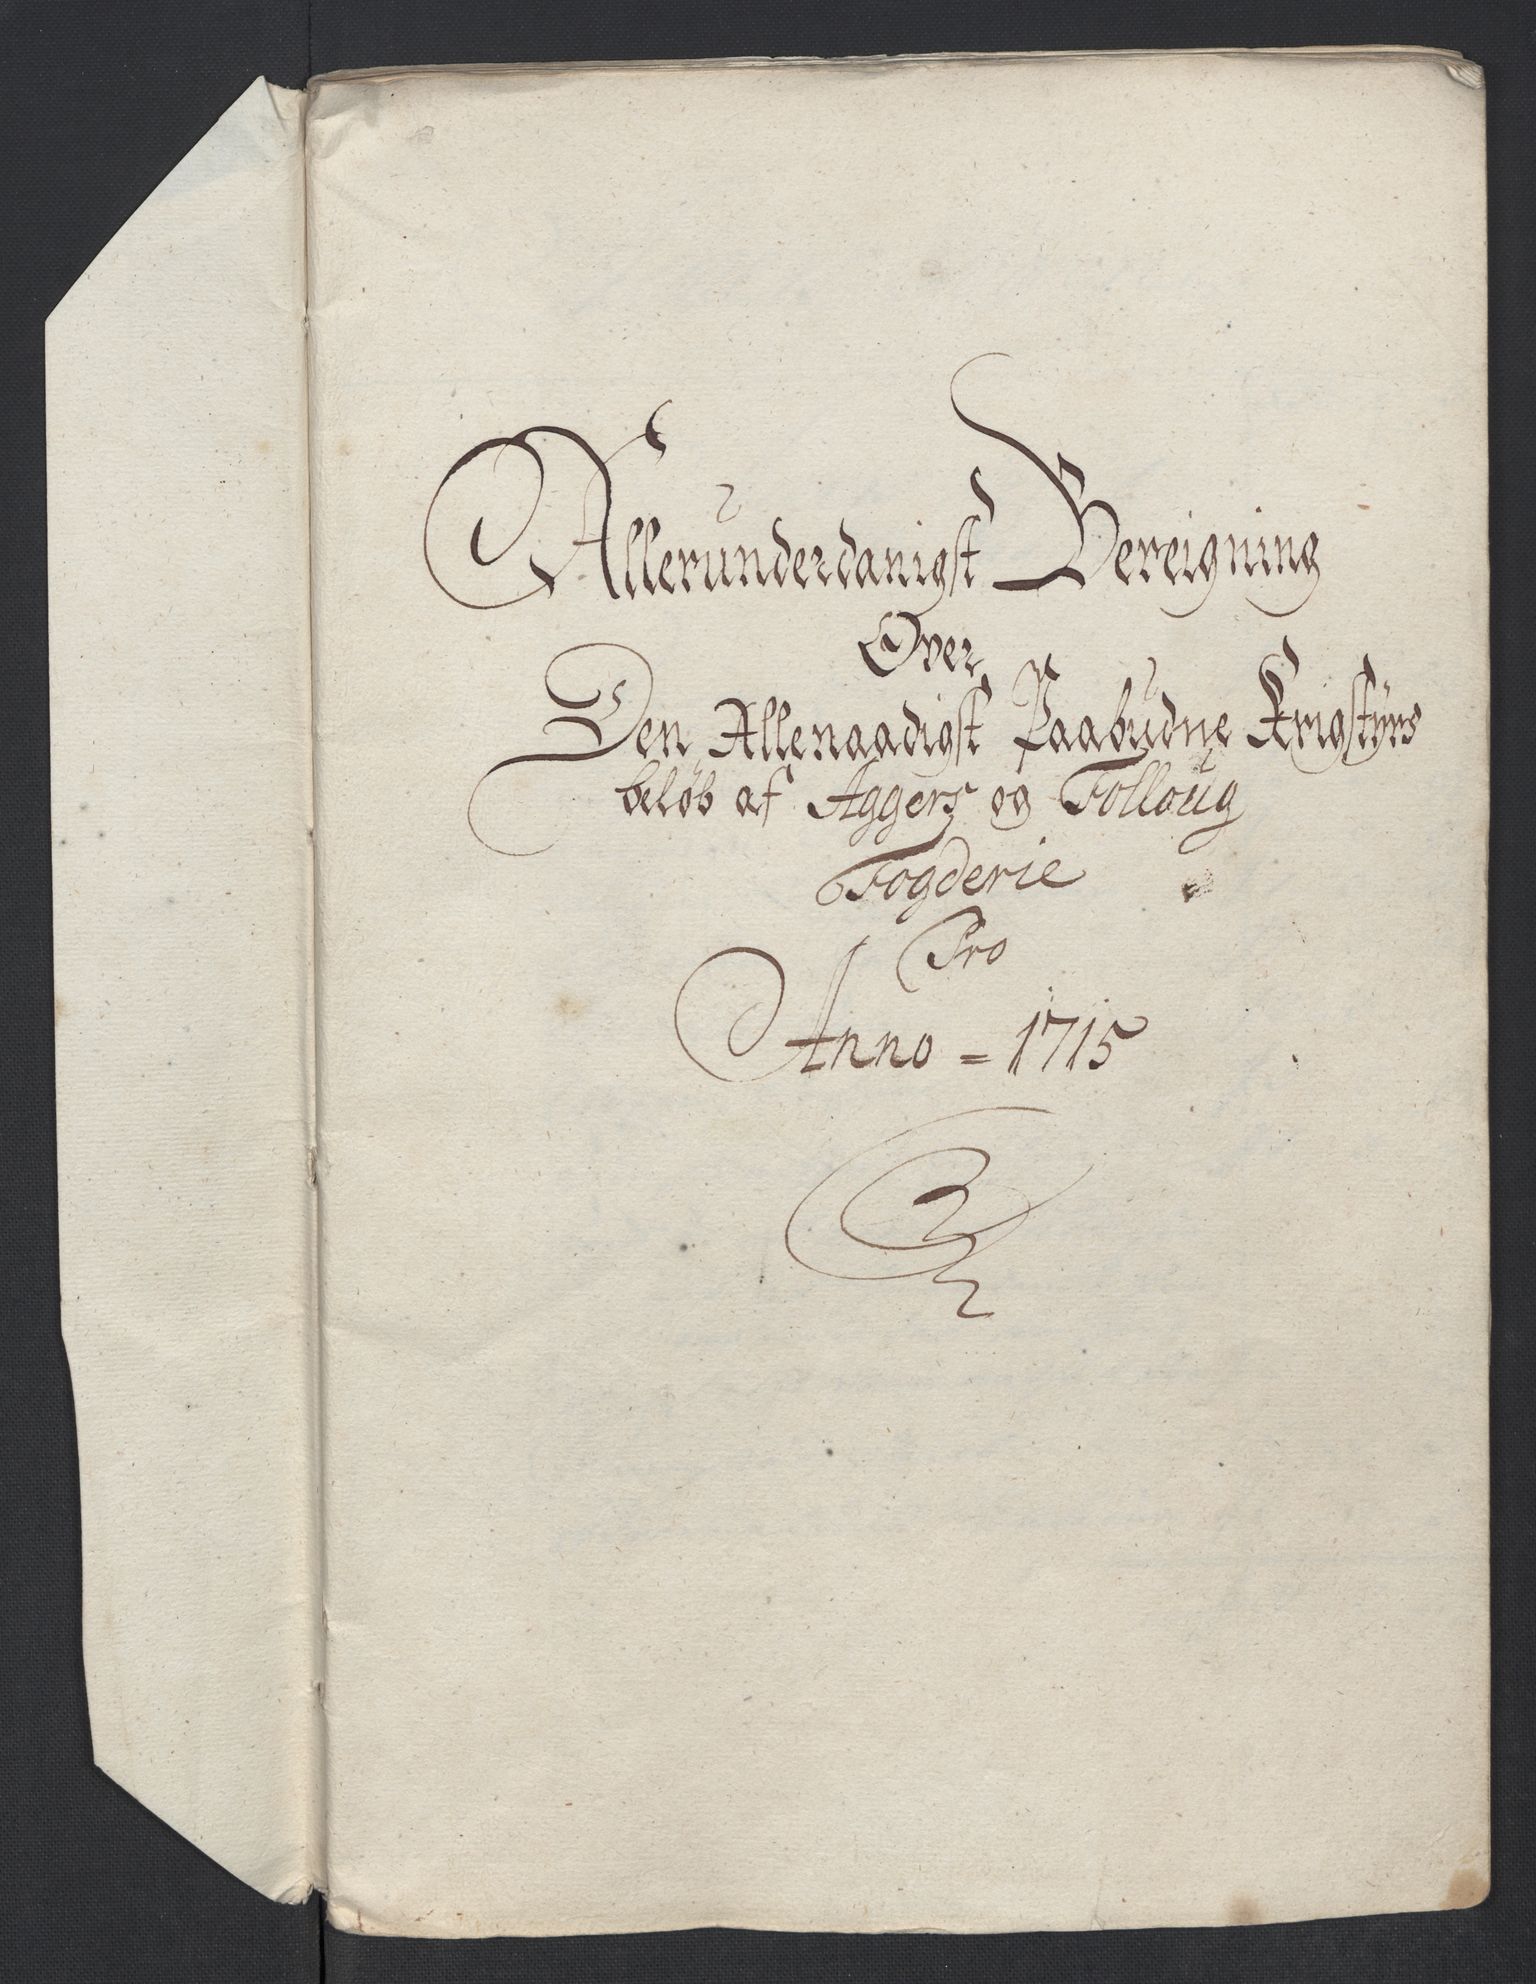 Allerunderdanigst Bereigning
Over
Den Allenaadigst Paabudne Krigstÿrs
beløb af Aggers og Folloug
Fogderie
Pro
Anno = 1715